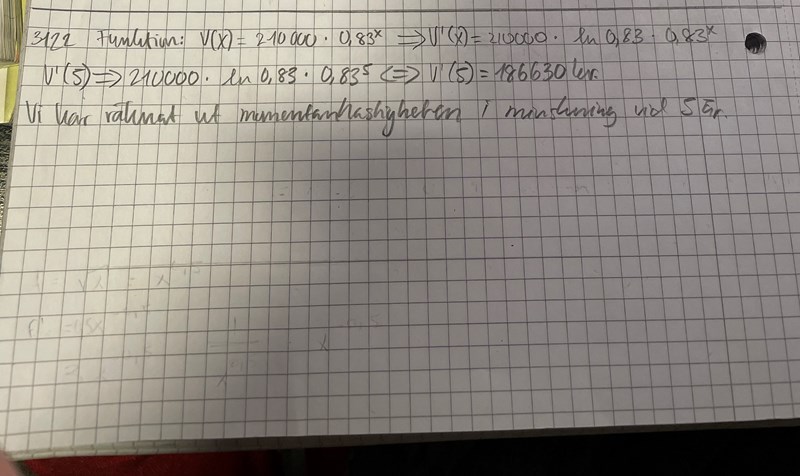 3122 Funktion: V(x) = 210 000 · 0,83ˣ ⟹ V'(x) = 210000 · ln 0,83 · 0,83ˣ
V'(5) ⟹ 210000 · ln 0,83 · 0,83⁵ ⟺ V'(5) = 186630 kr.
Vi har räknat ut momentanhastigheten i minskning vid 5 år.